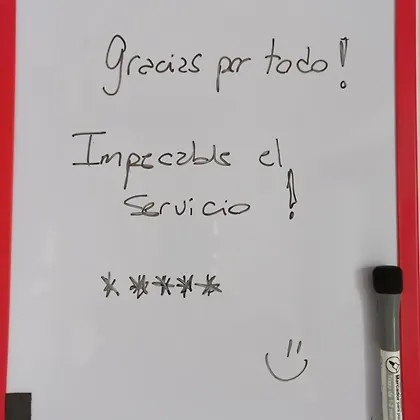 Gracias por todo!
Impecable el
servicio!
*****
Marcador